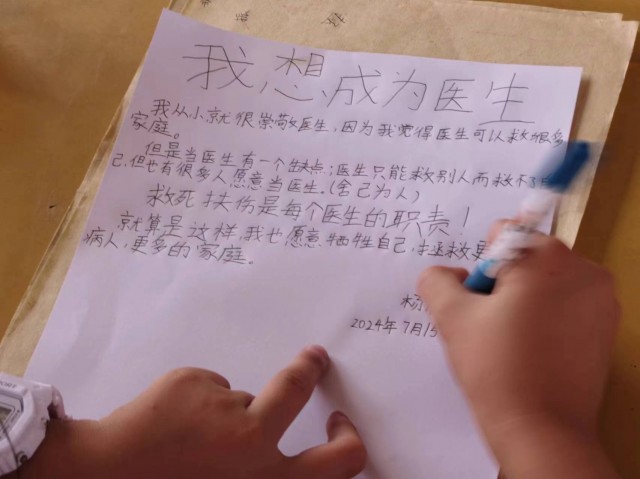 我想成为医生
我从小就很崇敬医生，因为我觉得医生可以救很多
家庭。
但是当医生有一个缺点：医生只能救别人而救不了
己，但也有很多人愿意当医生。（舍己为人）
救死扶伤是每个医生的职责！
就算是这样，我也愿意牺牲自己，拯救更
病人，更多的家庭。
杨
2024年7月15